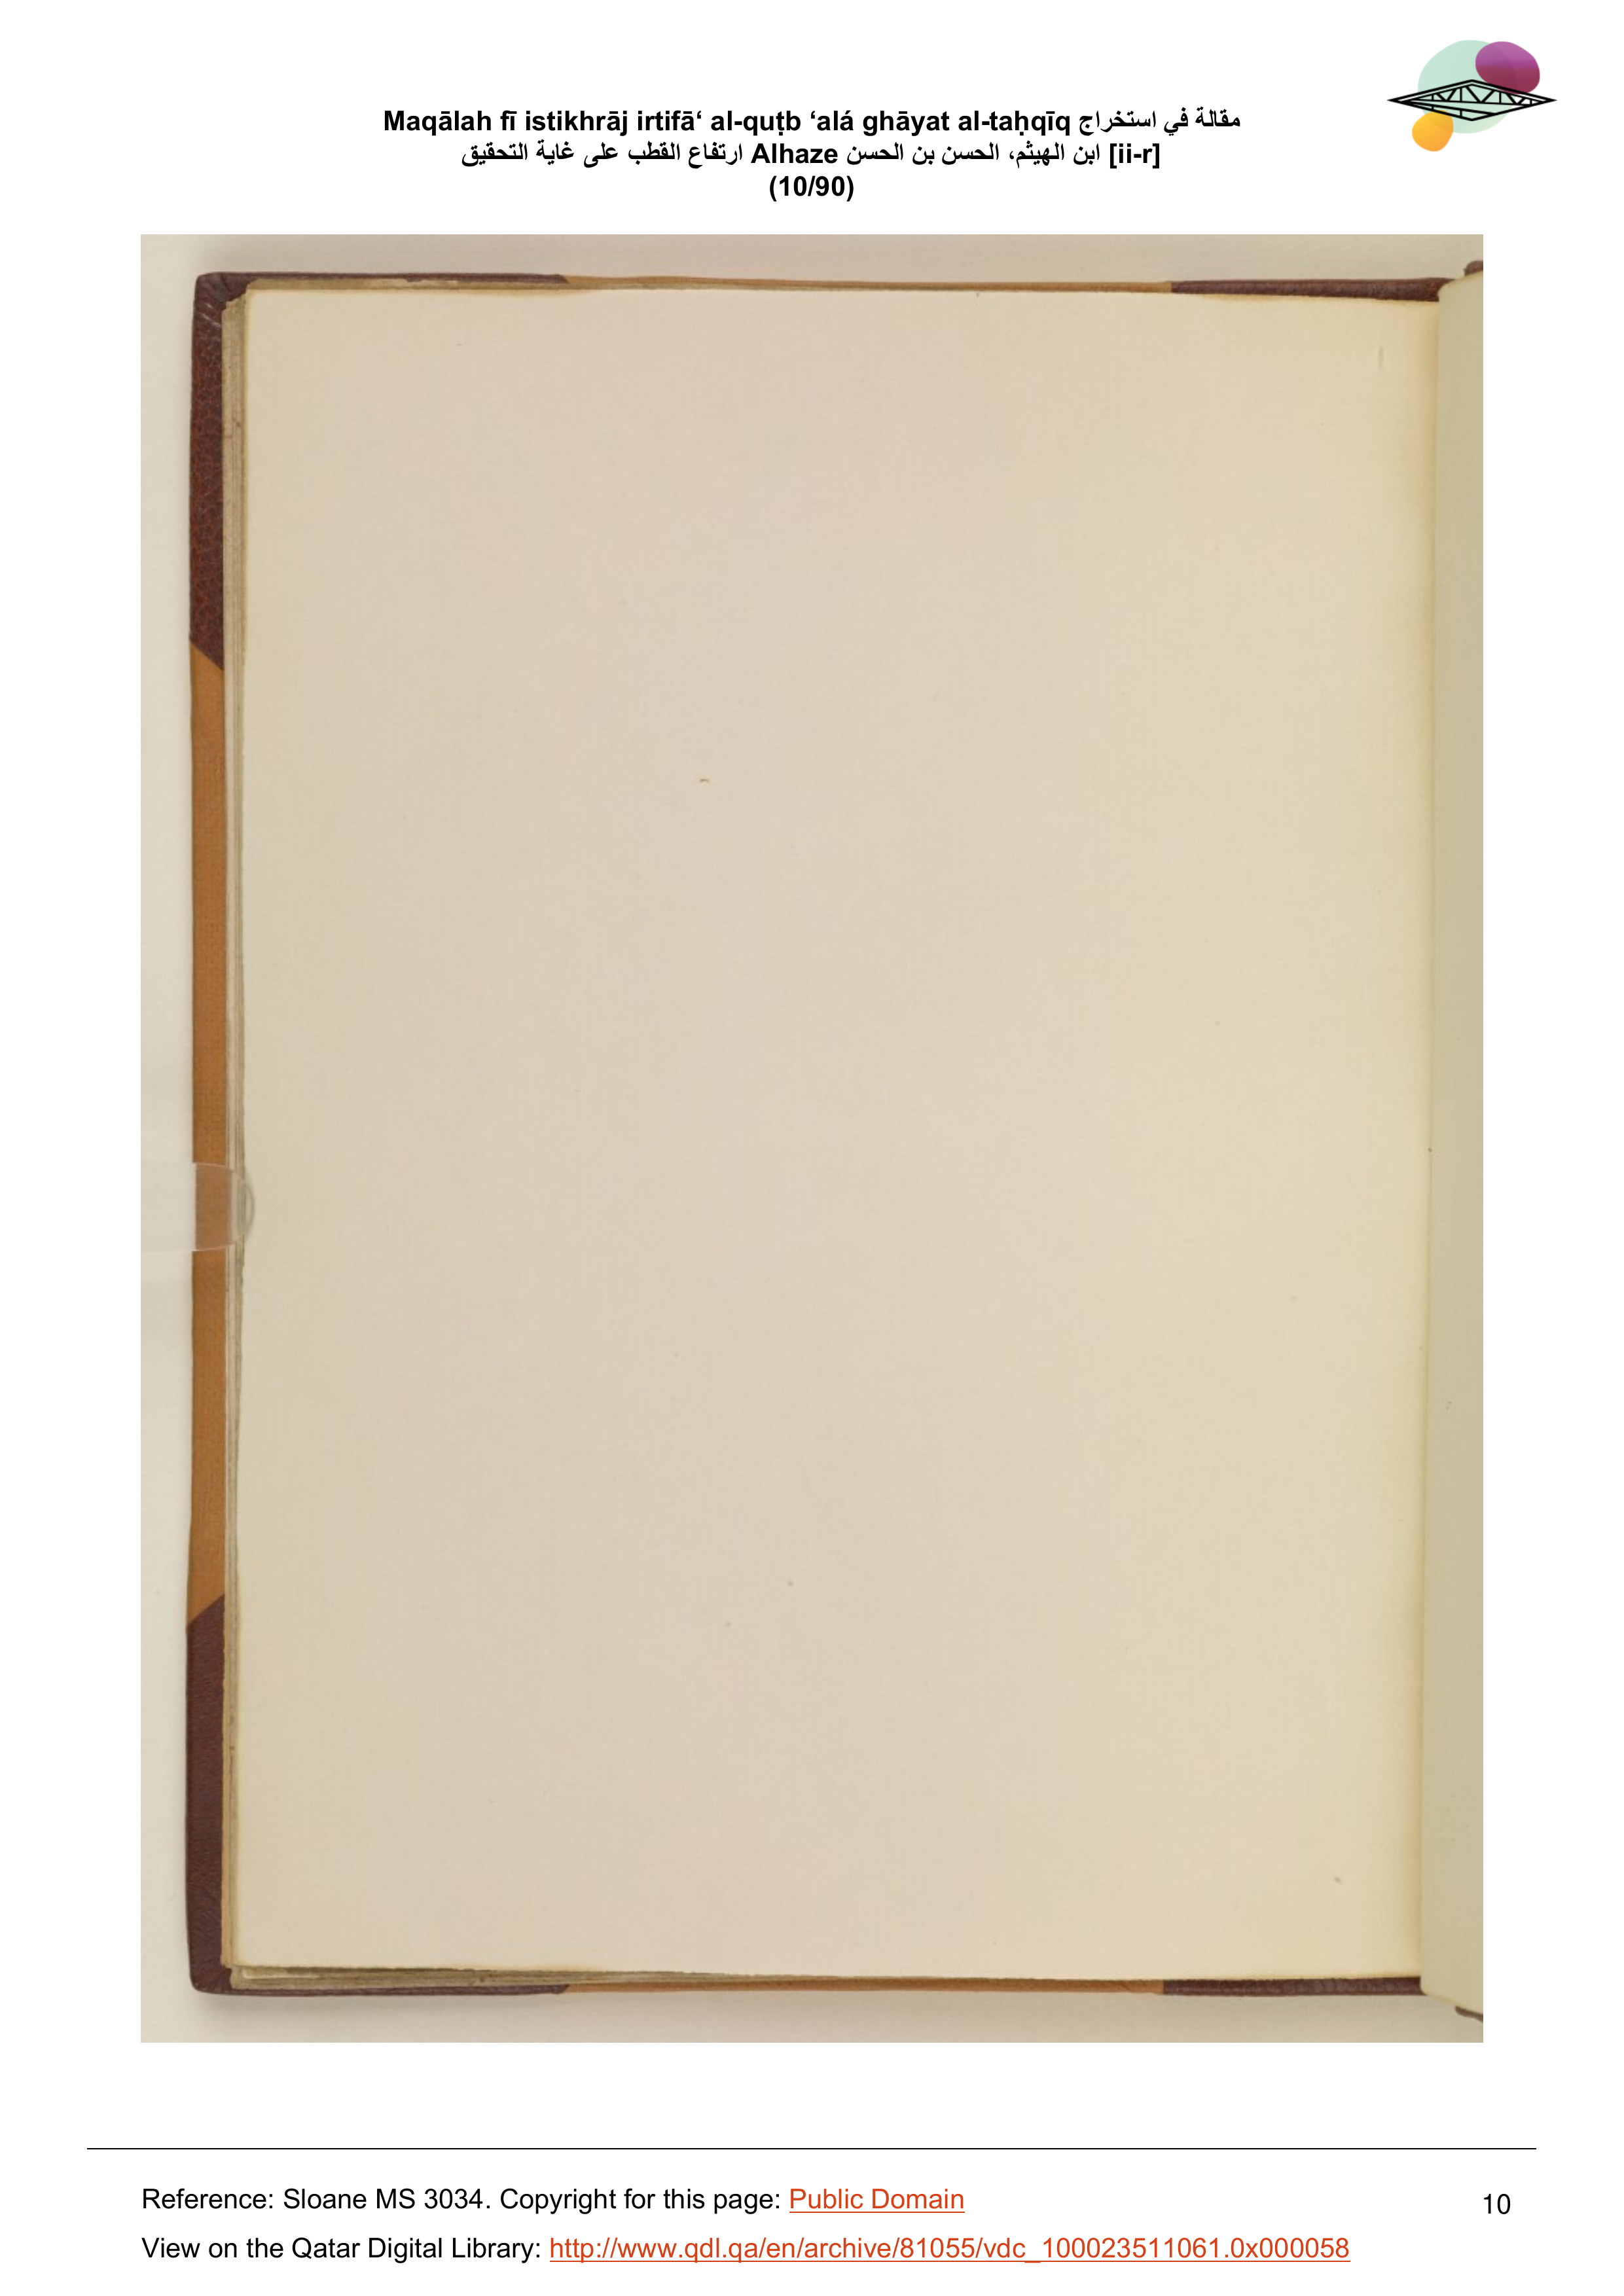 Maqālah fī istikhrāj irtifā‘ al-quṭb ‘alá ghāyat al-taḥqīq مقالة في استخراج
ارتفاع القطب على غاية التحقيق Alhaze ابن الهيثم، الحسن بن الحسن [ii-r]
(10/90)
Reference: Sloane MS 3034. Copyright for this page: Public Domain
10
View on the Qatar Digital Library: http://www.qdl.qa/en/archive/81055/vdc_100023511061.0x000058